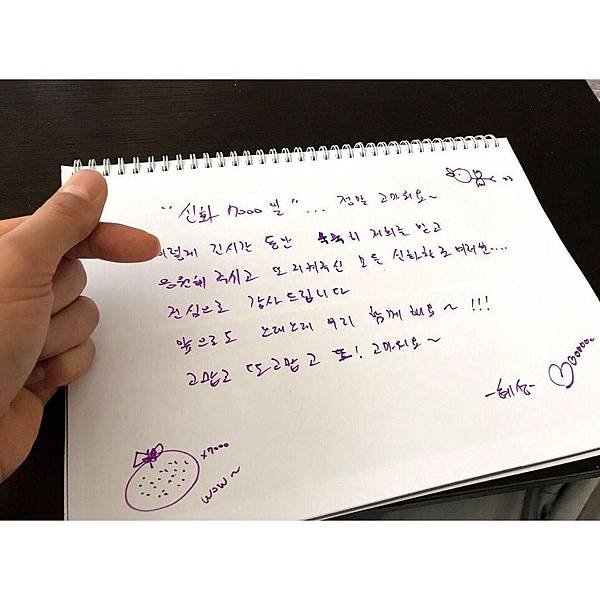 "신화 7000일" ... 정말 고마워요~
이렇게 긴시간 동안 묵묵히 저희를 믿고
응원해 주시고 또 지켜주신 모든 신화창조 여러분....
진심으로 감사드립니다
앞으로도 오래오래 우리 함께 해요~ !!!
고맙고 또 고맙고 또! 고마워요~
-혜성-
x7000
wow~